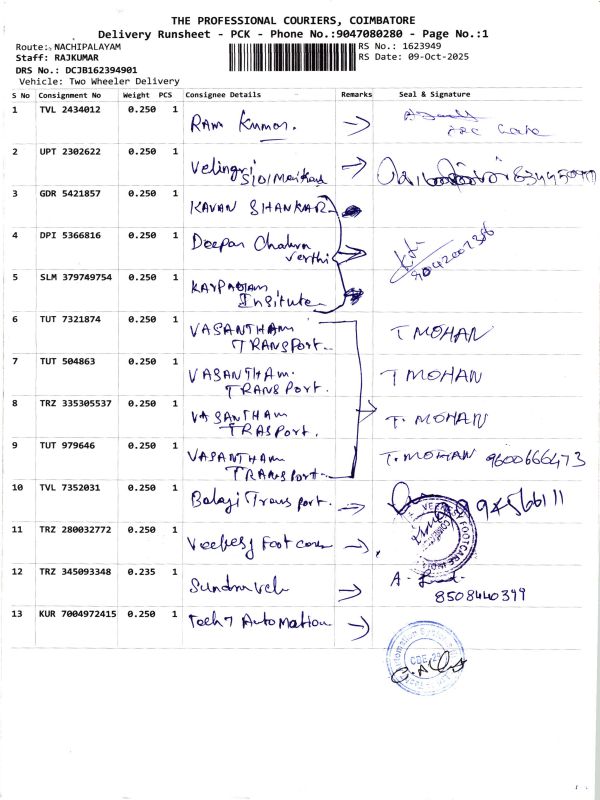 THE PROFESSIONAL COURIERS, COIMBATORE
Delivery Runsheet - PCK - Phone No.:9047080280 - Page No.:1
Route: NACHIPALAYAM RS No.: 1623949
Staff: RAJKUMAR RS Date: 09-Oct-2025
DRS No.: DCJB162394901
Vehicle: Two Wheeler Delivery
S No Consignment No Weight PCS Consignee Details Remarks Seal & Signature
1 TVL 2434012 0.250 1 Ram Kumar.
2 UPT 2302622 0.250 1 Velingri
S/O/
3 GDR 5421857 0.250 1 KAVAN SHANKAR
4 DPI 5366816 0.250 1 Deepan Chakra
verthi 9042001386
5 SLM 379749754 0.250 1 KARPAGAM
Insitute
6 TUT 7321874 0.250 1 VASANTHAM T MOHAN
TRANSPORT.
7 TUT 504863 0.250 1 VASANTHAM. T MOHAN
TRANSPORT.
8 TRZ 335305537 0.250 1 VASANTHAM T. MOHAN
TRASPORT.
9 TUT 979646 0.250 1 VASANTHAM T. MOHAN 9600666473
TRANSPORT.
10 TVL 7352031 0.250 1 Balaji Transport.
11 TRZ 280032772 0.250 1 Foot care FOOTCARE
12 TRZ 345093348 0.235 1 Sundravel A.
8508440399
13 KUR 7004972415 0.250 1 Tech 7 AutoMation